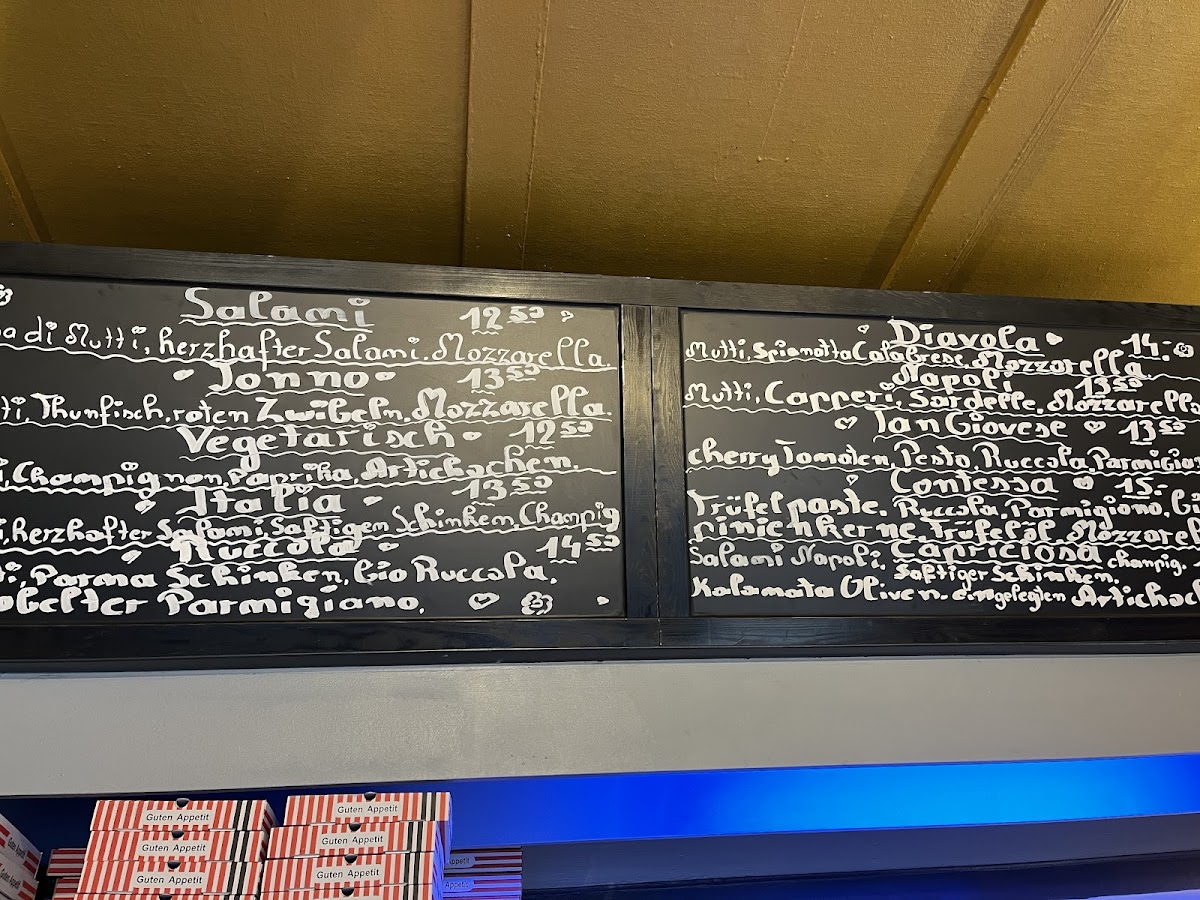 Salami 12 50
a di Mutti, herzhafter Salami. Mozzarella.
Tonno 13 50
ti, Thunfisch, roten Zwibeln, Mozzarella.
Vegetarisch 12 50
i, Champignon, Paprika, Artichochen.
Italia 13 50
i, herzhafter Salami, Saftigem Schinken, Champig
Ruccola 14 50
i, Parma Schinken, bio Ruccola.
obelter Parmigiano.
Diavola 14.-
Mutti, Spianatta Calabrese, Mozzarella
Napoli 13 50
Mutti, Capperi, Sardelle, Mozzarella
Tan Giovese 13 50
cherry Tomaten, Pesto, Ruccola, Parmigian
Contessa 15.-
Trüfelpaste, Ruccola, Parmigiono, Ci
pinienkerne, Trüfelöl, Mozzarel
Capriciosa
Salami Napoli, Saftiger Schinken, champig.
Kalamata Oliven, eingelegten Artichoc
Guten Appetit
Guten Appetit
Guten Appetit
Guten Appetit
Guten Appetit
Guten Appetit
Appetit
Appetit